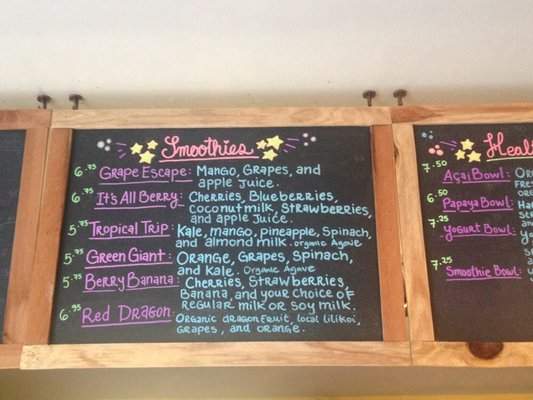 Smoothies
6.75 Grape Escape: Mango, Grapes, and
apple Juice.
6.75 It's All Berry: Cherries, Blueberries,
coconutmilk, Strawberries,
and apple juice.
5.75 Tropical Trip: Kale, mango, pineapple, Spinach,
and almond milk. organic Agave
5.75 Green Giant: Orange, Grapes, Spinach,
and Kale. Organic Agave
5.75 Berry Banana: Cherries, Strawberries,
Banana, and your choice of
regular milk or soy milk.
6.95 Red Dragon: Organic dragon fruit, local lilikoi,
Grapes, and orange.
7.50 Açai Bowl:
6.50 Papaya Bowl:
7.25 Yogurt Bowl:
7.25 Smoothie Bowl: